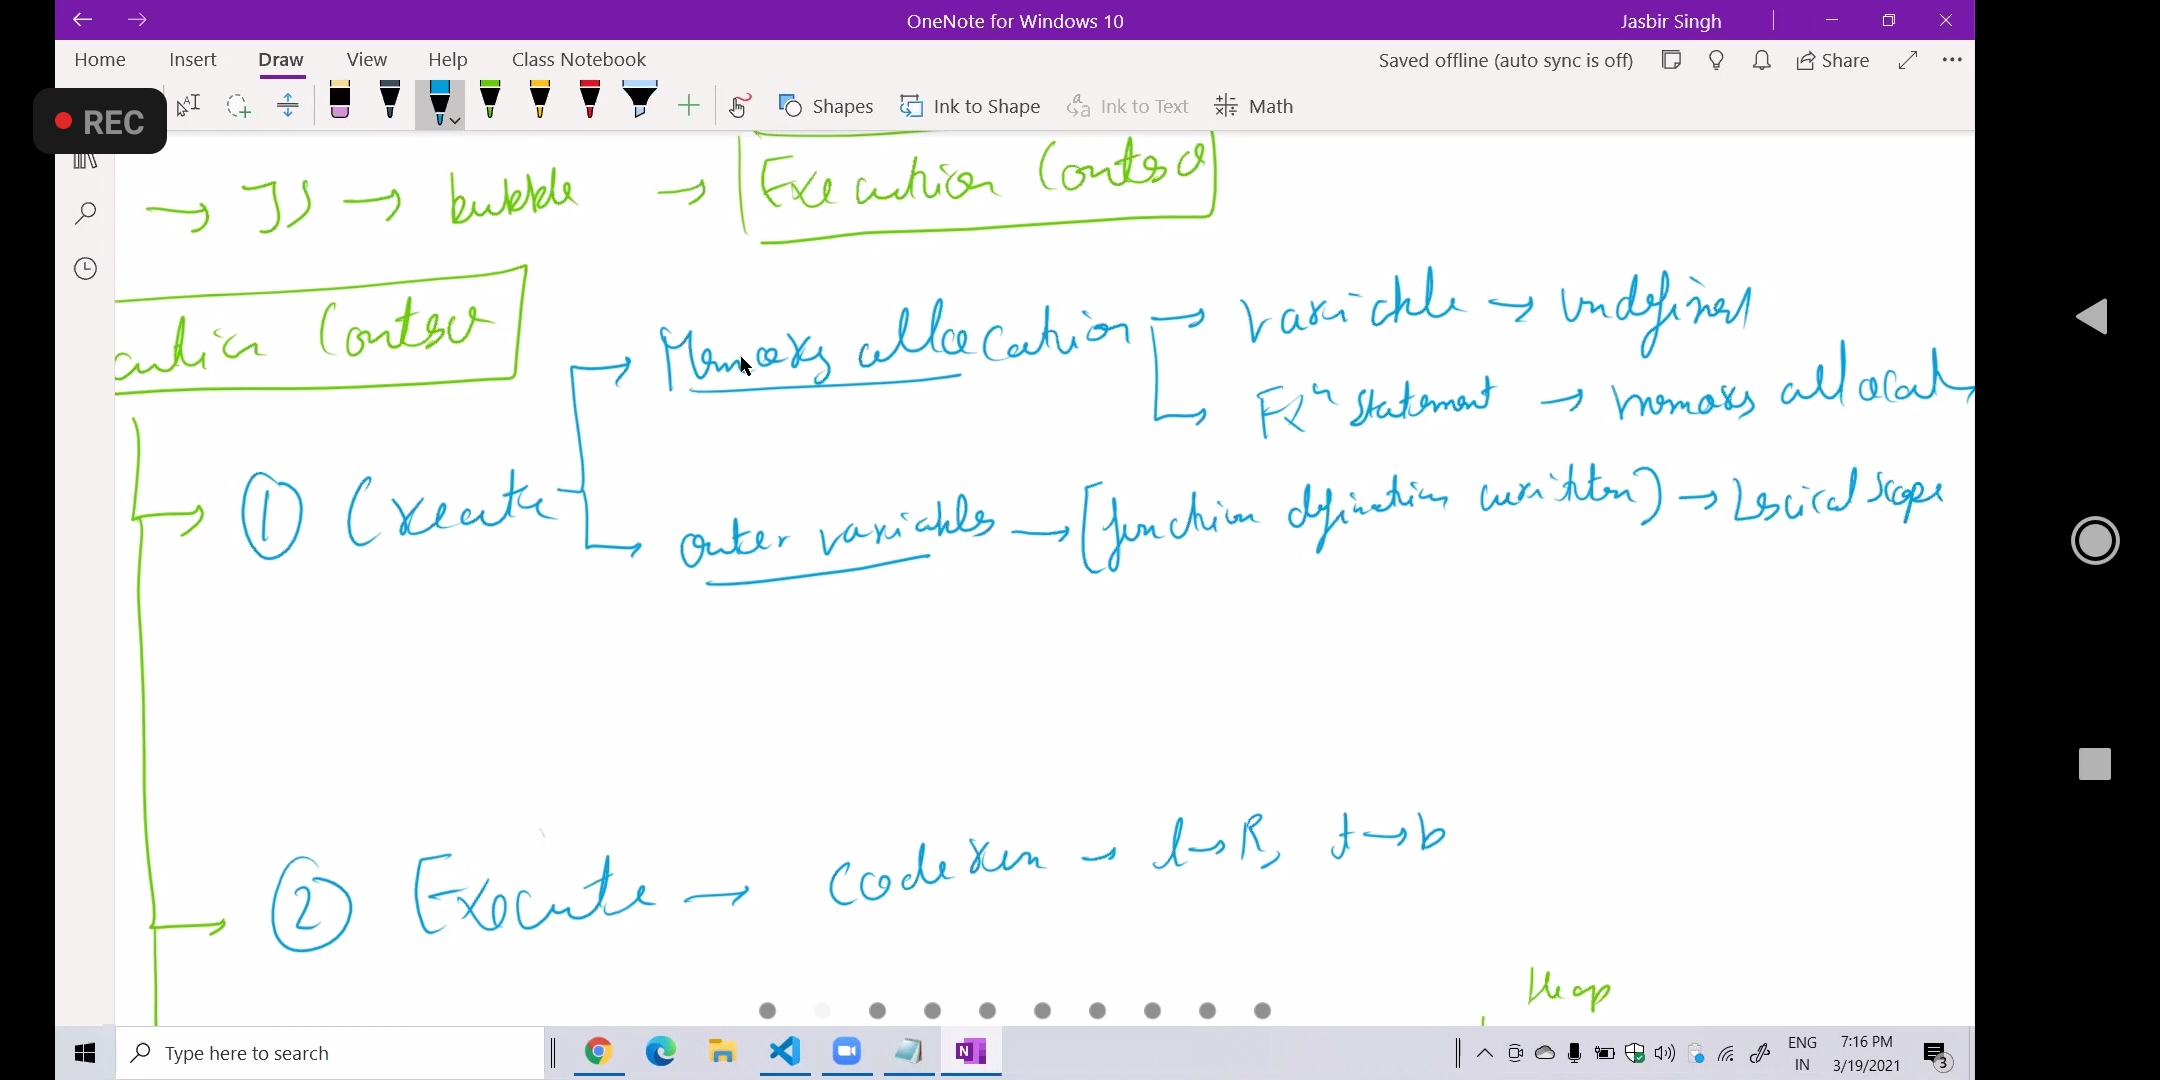 OneNote for Windows 10
Jasbir Singh
Home Insert Draw View Help Class Notebook
Saved offline (auto sync is off) Share
REC
Shapes Ink to Shape Ink to Text Math
→ JS → bubble → Execution Context
cution Context
Memory allocation → variable → undefined
→ Fxn statement → memory allocat
① Create
outer variables → [function defination written) → Lexical scope
② Execute → code run → l→R, t→b
Heap
Type here to search
ENG
IN
7:16 PM
3/19/2021
3